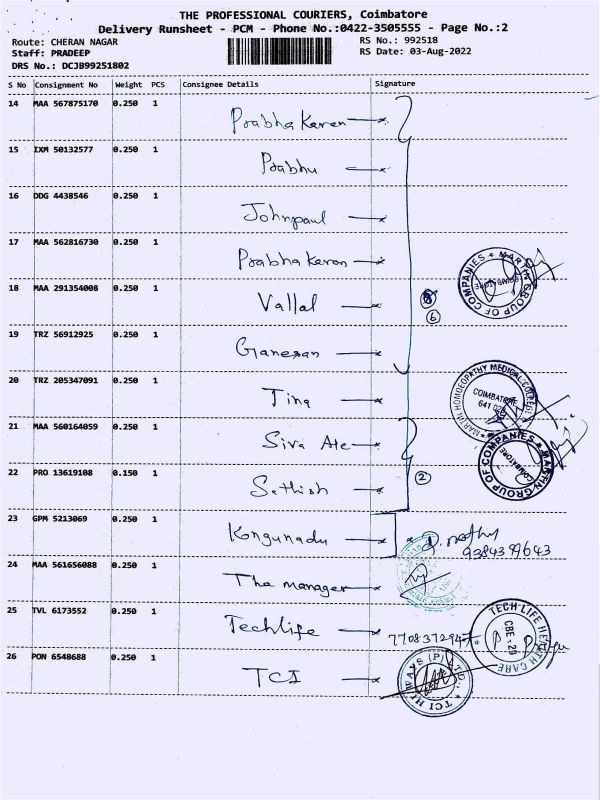 THE PROFESSIONAL COURIERS, Coimbatore
Delivery Runsheet - PCM - Phone No.:0422-3505555 - Page No.:2
Route: CHERAN NAGAR RS No.: 992518
Staff: PRADEEP RS Date: 03-Aug-2022
DRS No.: DCJB99251802
S No Consignment No Weight PCS Consignee Details Signature
14 MAA 567875170 0.250 1 Prabha Karan
15 IXM 50132577 0.250 1 Prabhu
16 DDG 4438546 0.250 1 Johnpaul
17 MAA 562816730 0.250 1 Prabha Karan
MARTIN GROUP OF COMPANIES
18 MAA 291354008 0.250 1 Vallal
6
19 TRZ 56912925 0.250 1 Ganesan
MARTIN HOMOEOPATHY MEDICAL COLLEGE
COIMBATORE
20 TRZ 205347091 0.250 1 Tina
21 MAA 560164059 0.250 1 Siva Ate
MARTIN GROUP OF COMPANIES
COIMBATORE
22 PRO 13619108 0.150 1 Sathish
2
23 GPM 5213069 0.250 1 Kongunadu
24 MAA 561656088 0.250 1 The manager
25 TVL 6173552 0.250 1 Techlife
TECH LIFE HEALTH CARE
26 PON 6548688 0.250 1 TCI
TCI HIWAYS (P) LTD.